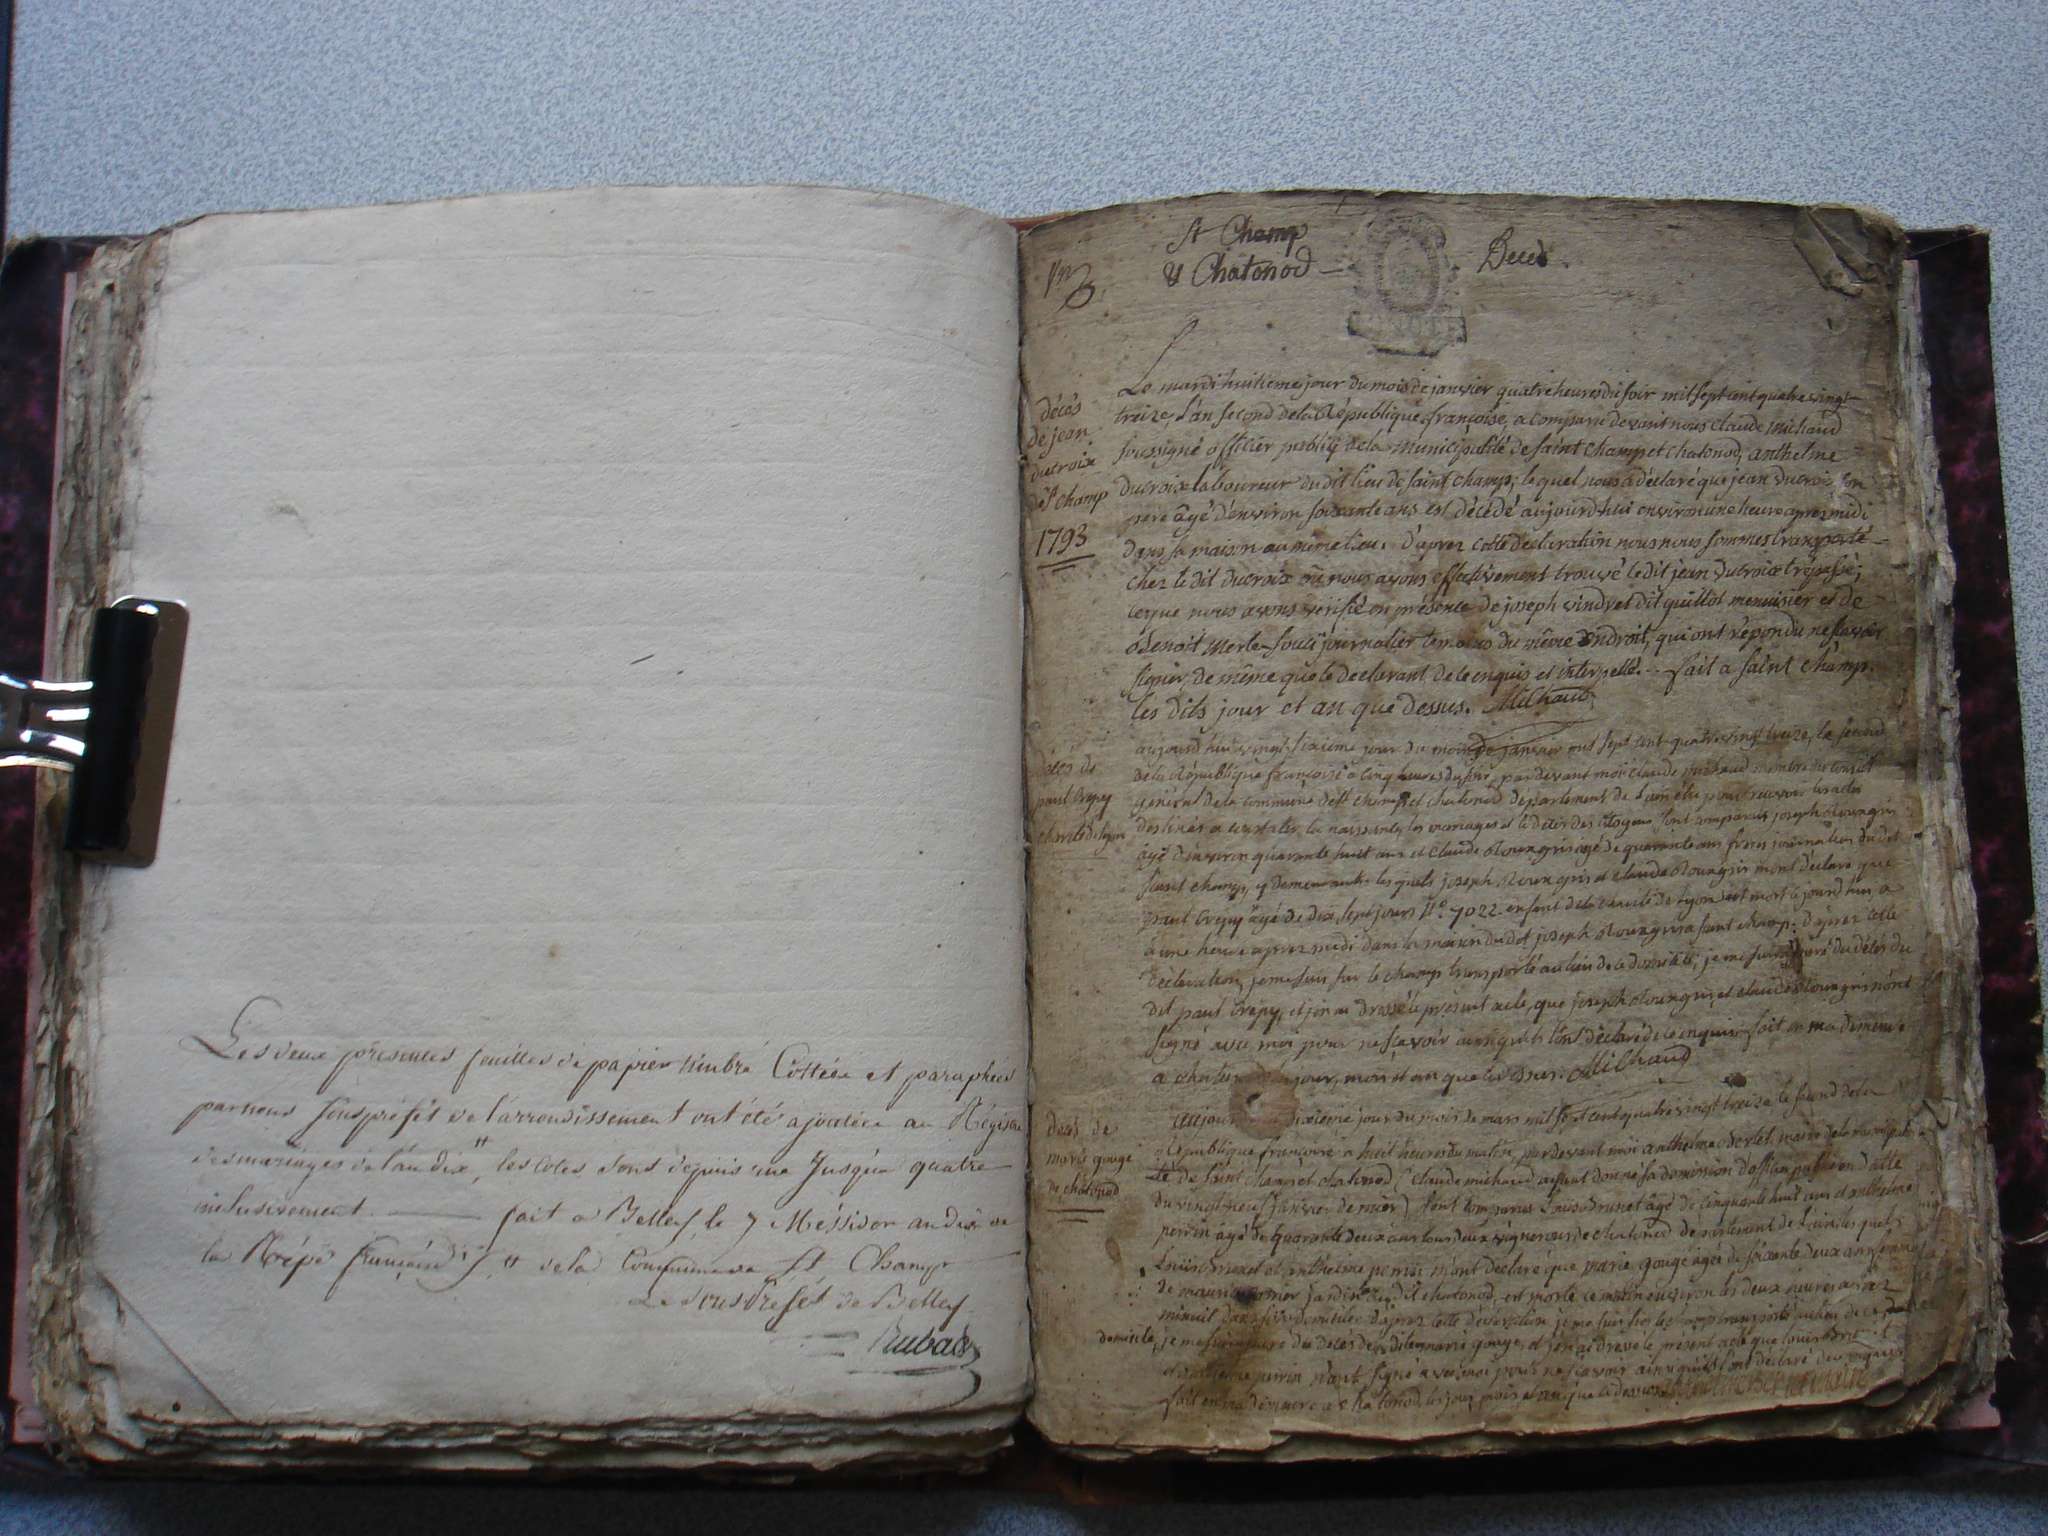 Les deux présentes feuilles de papier timbré Cottées et paraphées
par nous Souspréfet de l'arrondissement ont été ajoutées au Régistre
des mariages de l'an dix, les cotes sont depuis une Jusqu'a quatre
inclusivement. fait a Belley le 7 Méssidor an dix de
la Répe française de la Commune de St Champ
Le Sous Préfet de Belley
Rubat
St Champ
& Chatonod
Décès.
décès
de jean
ducroix
de St champ
1793
Le mardi huitieme jour du mois de janvier quatre heures du soir mil sept cent quatre vingt
treize, l'an second de la République françoise, a comparu devant nous claude michaud
soussigné officier public de la municipalité de saint champ et chatonod, anthelme
ducroix laboureur du dit lieu de saint champ; lequel nous a déclaré que jean ducroix son
pere âgé d'environ soixante ans est décédé aujourd'hui environ une heure apres midi
dans sa maison au même lieu. d'aprez cette déclaration nous nous sommes transporté
chez le dit ducroix où nous avons effectivement trouvé le dit jean ducroix trépassé;
ce que nous avons vérifié en présence de joseph vindret dit quillot menuisier et de
Benoit merle journalier temoins du même endroit, qui ont répondu ne sçavoir
signer, de même que le déclarant de ce enquis et interpellé. fait a saint champ
les dits jour et an que dessus. Michaud
décès de
paul crepy
charité de lyon
aujourd'hui vingt sixieme jour du mois de janvier mil sept cent quatre vingt treize, le second
de la République françoise a cinq heures du soir, par devant moi claude michaud membre du conseil
général de la commune de St champ et chatonod département de l'ain élu pour recevoir les actes
destinés a constater les naissances, les mariages et le décès des citoyens sont comparus joseph
âgé d'environ quarante huit ans et claude agé de quarante ans freres journaliers du dit
saint champ, y demeurants lesquels joseph et claude m'ont déclaré que
paul crepy agé de dix sept jours N° 7022 enfant de la charité de lyon est mort ajourd'hui a
a une heure aprez midi dans la maison du dit joseph a saint champ. d'aprez cette
déclaration, je me suis sur le champ transporté au lieu de ce domicile; je me suis assuré du décès du
dit paul crepy, et j'en ai dressé le présent acte, que joseph et claude n'ont
signé avec moi pour ne sçavoir ainsi qu'ils l'ont déclaré de ce enquis fait en ma demeure
a chaton jour, mois et an que ci dessus. Michaud
décès de
marie gouge
de chatonod
aujour sixieme jour du mois de mars mil sept cent quatre vingt treize le second de la
République françoise a huit heures du matin, par devant moi anthelme maire de la municipali
té de saint champ et chatonod, (claude michaud ayant donné sa démission d'officier public en date
du vingt neuf janvier dernier) sont comparus louis brunet âgé de cinquante huit ans et anthelme
perrin âgé de quarante deux ans tous deux vignerons de chatonod département de l'ain, les quels
louis brunet et anthelme perrin m'ont déclaré que marie gouge agée de soixante deux ans femme
de maurice du dit chatonod, est morte ce matin environ les deux heures aprez
minuit dans son domicile. d'aprez cette déclaration je me suis sur le champ transporté au lieu de ce
domicile, je me suis assuré du décès de la dite marie gouge, et j'en ai dressé le présent acte que louis brunet
et anthelme perrin n'ont signé avec moi pour ne sçavoir ainsi qu'ils l'ont déclaré de ce enquis
fait en ma demeure a chatonod, les jour mois et an que ci dessus